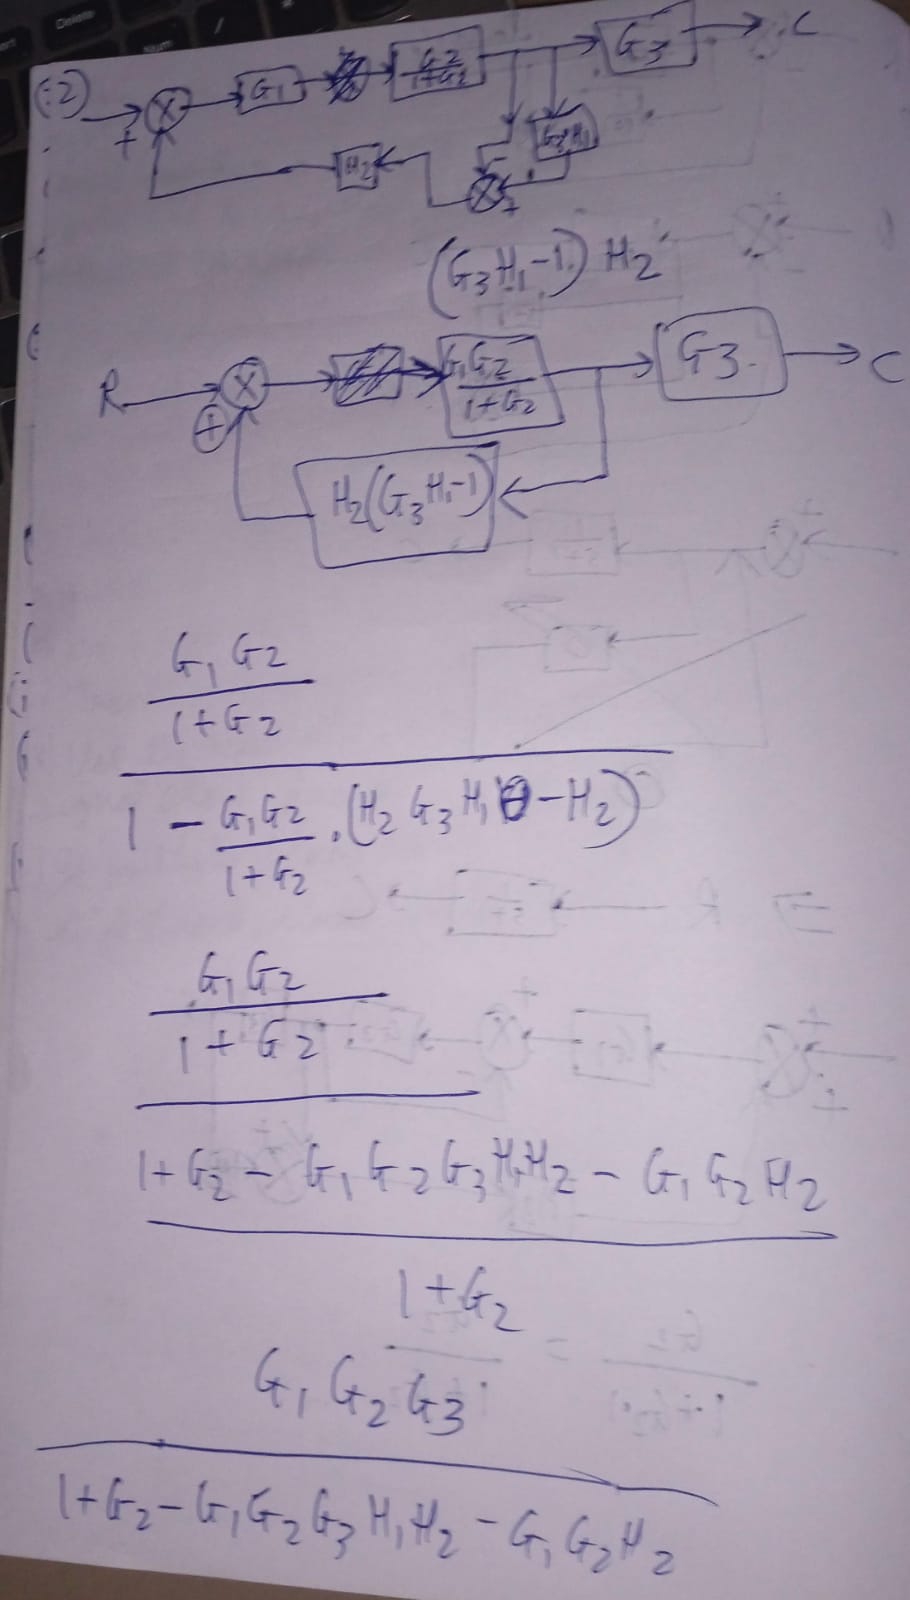 :2) + G1 G2/1+G2 G3 C
G3H1
H2 - +
(G3H1-1) H2
R + G1G2/1+G2 G3 C
H2(G3H1-1)
G1G2
1+G2
1 - G1G2/1+G2 . (H2G3H1 - H2)
G1G2
1+G2
1+G2 - G1G2G3H1H2 - G1G2H2
1+G2
G1G2G3
1+G2-G1G2G3H1H2-G1G2H2